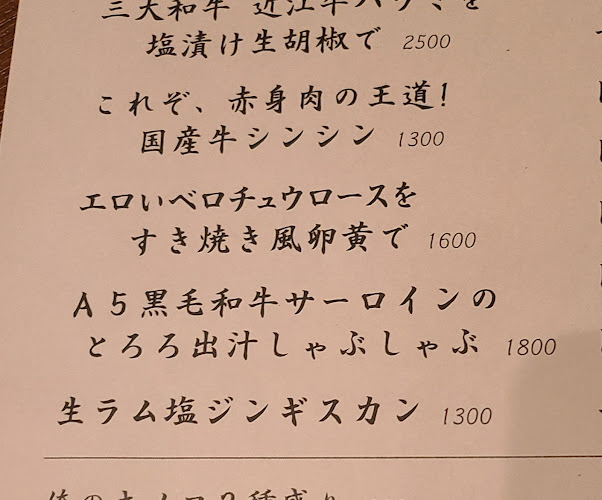 三大和牛 近江牛ハラミを
塩漬け生胡椒で 2500
これぞ、赤身肉の王道!
国産牛シンシン 1300
エロいベロチュウロースを
すき焼き風卵黄で 1600
A5黒毛和牛サーロインの
とろろ出汁しゃぶしゃぶ 1800
生ラム塩ジンギスカン 1300